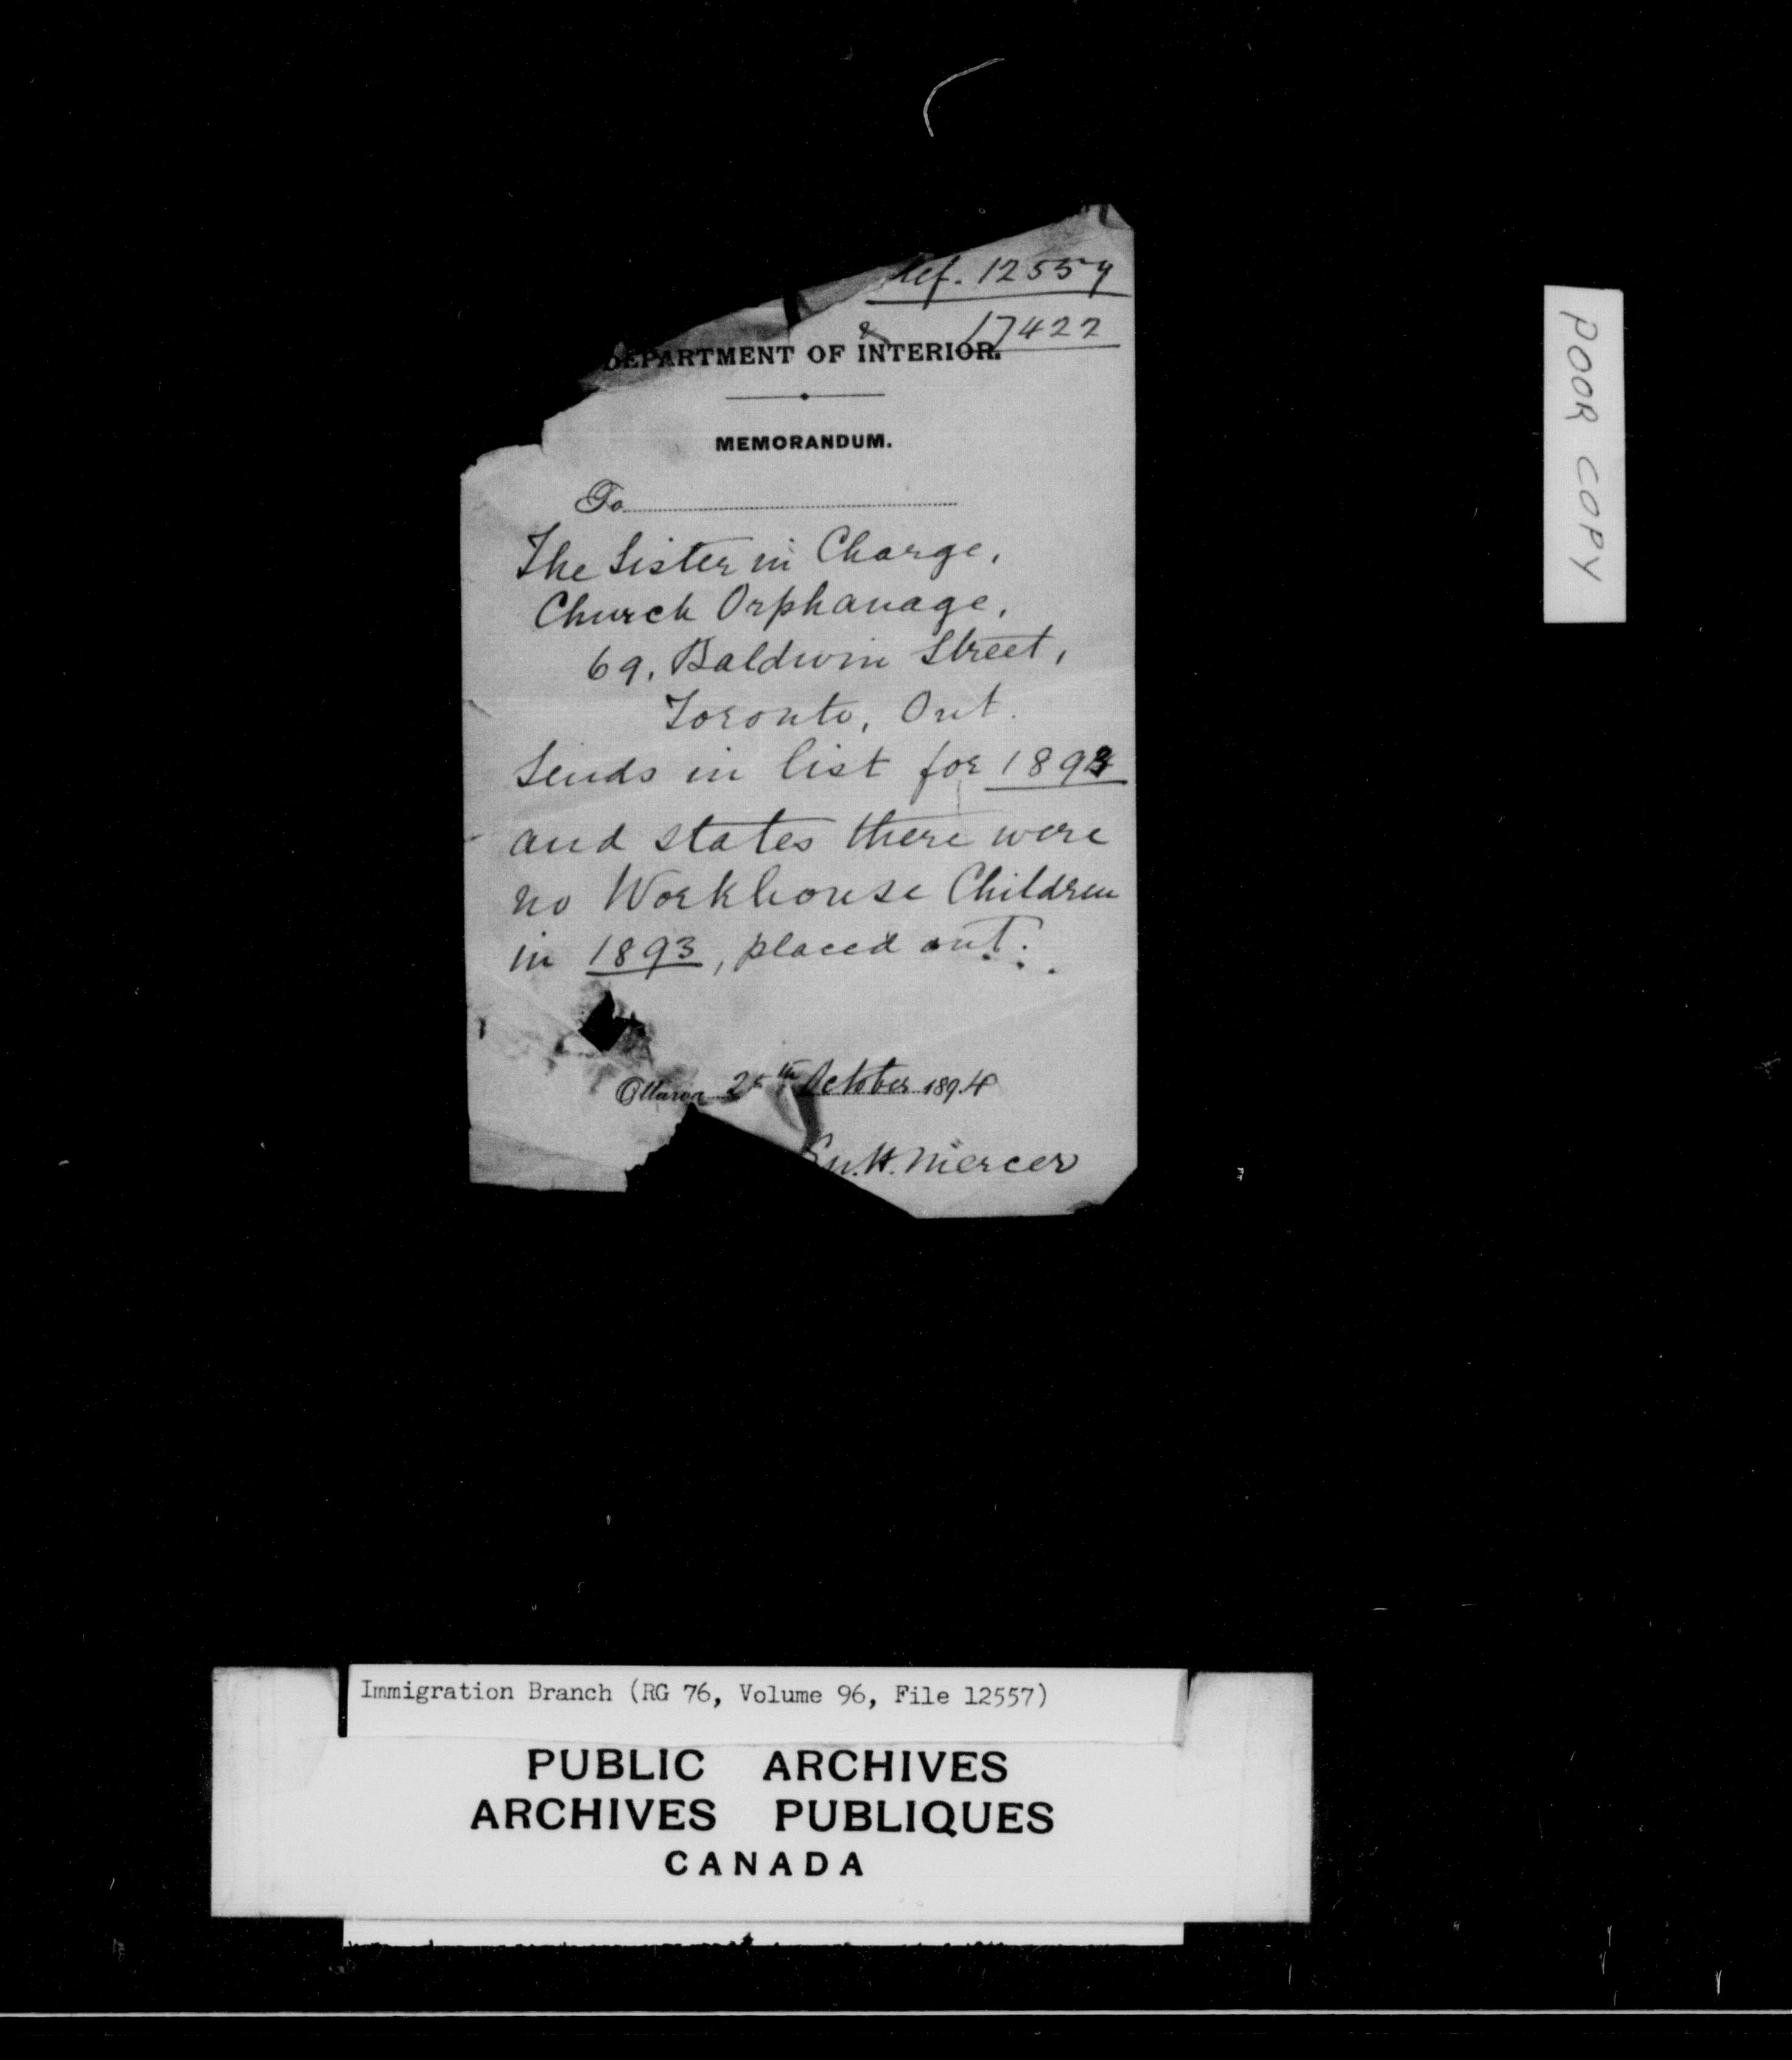 Ref. 12557
& 17422
DEPARTMENT OF INTERIOR.
MEMORANDUM.
To
The Sister in Charge,
Church Orphanage,
69, Baldwin Street,
Toronto, Ont.
Sends in list for 1893
and states there were
no Workhouse Children
in 1893, placed out.
Ottawa 25th October 1894
H. Mercer
POOR COPY
Immigration Branch (RG 76, Volume 96, File 12557)
PUBLIC ARCHIVES
ARCHIVES PUBLIQUES
CANADA